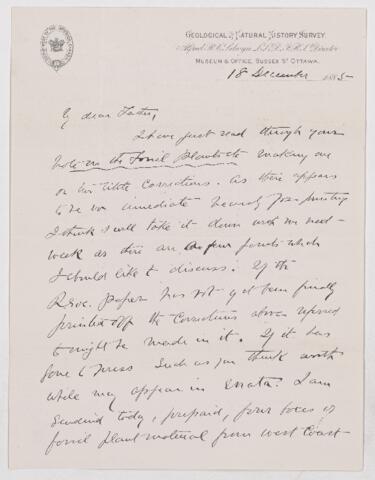 GEOLOGICAL & NATURAL HISTORY SURVEY.
Alfred R. C. Selwyn, L.L.D., F.R.S., Director
MUSEUM & OFFICE, SUSSEX ST OTTAWA.
18 December 1885
My dear Father,
I have just read through your
note on the Fossil Plants etc making one
or two little corrections. As there appears
to be no immediate hurry for printing
I think I will take it down with me next
week as there are a few points which
I should like to discuss. If the
R. Soc. paper has not yet been finally
printed off the corrections above referred
to might be made in it. If it has
gone to press such as you think worth
while may appear in errata. I am
sending today, prepaid, four boxes of
fossil plant material from West Coast